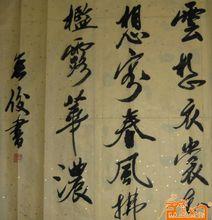 雲想衣裳花
想容春風拂
檻露華濃